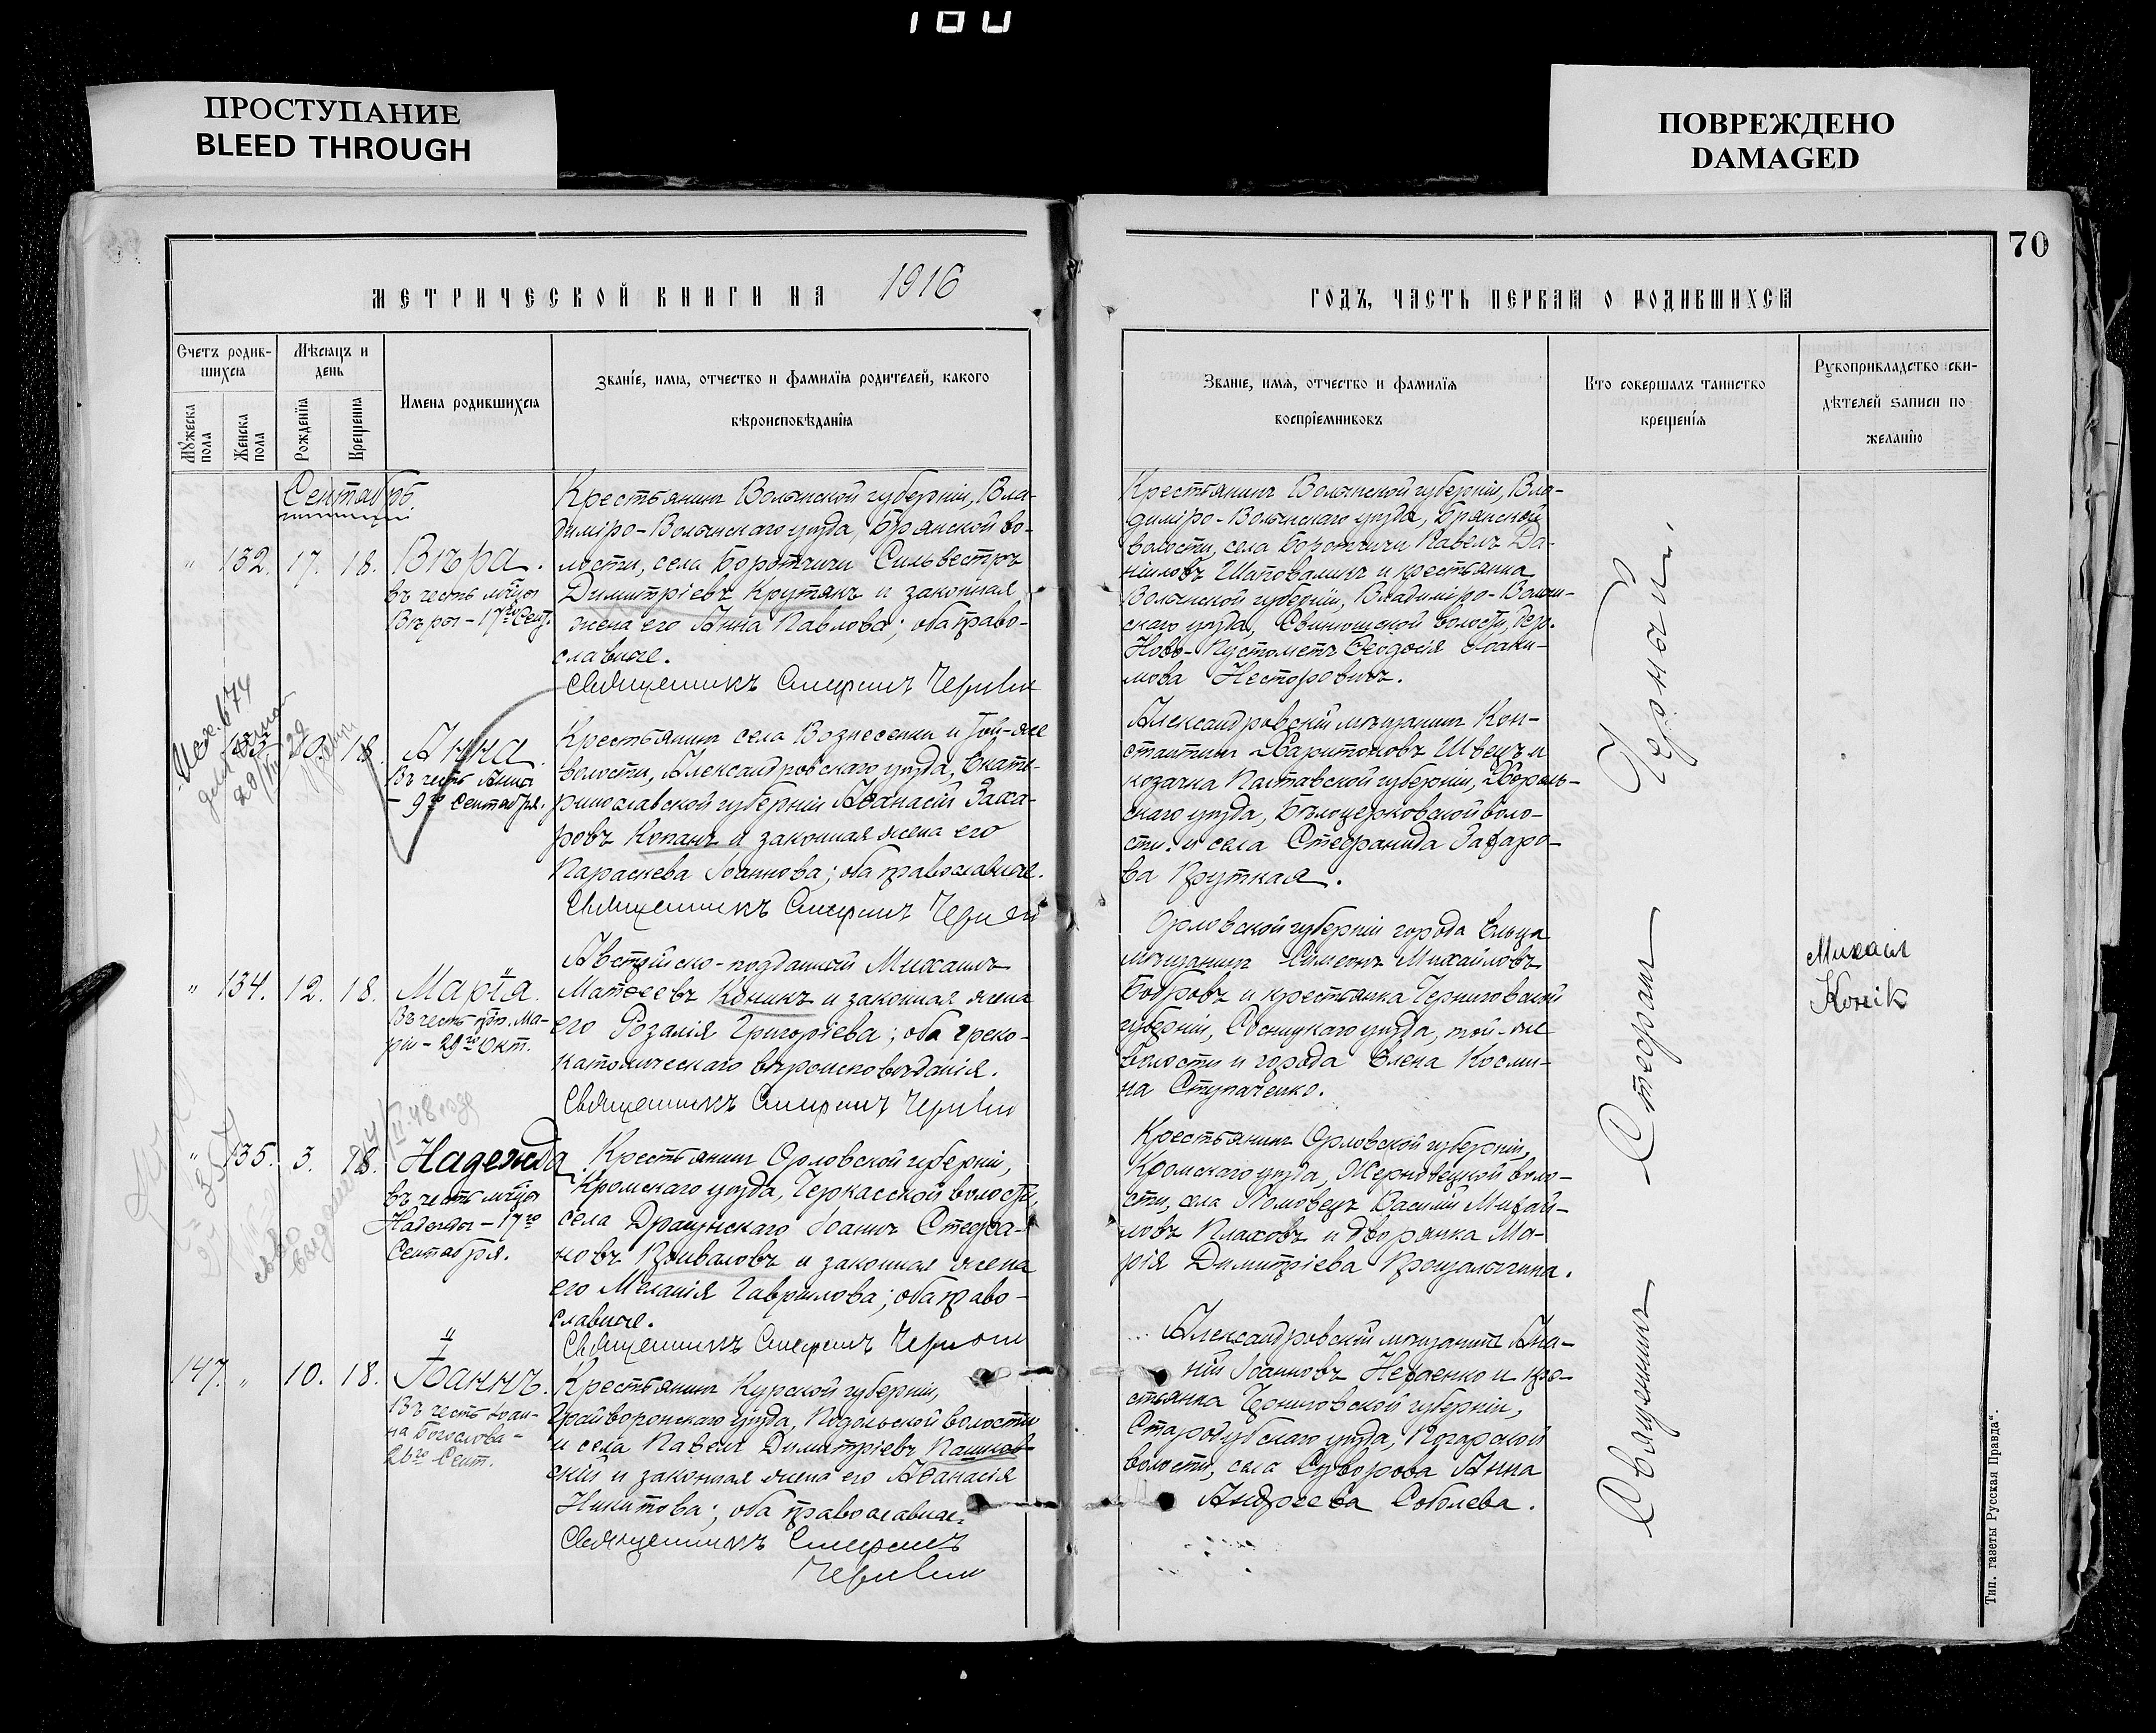 100
ПРОСТУПАНИЕ
BLEED THROUGH
ПОВРЕЖДЕНО
DAMAGED
70
МЕТРИЧЕСКОЙ КНИГИ НА 1916
ГОДЪ, ЧАСТЬ ПЕРВАЯ О РОДИВШИХСЯ
Счетъ родив-
шихся
Мѣсяцъ и
день
Мужеска пола
Женска пола
Рожденїя
Крещенїя
Имена родившихся
Званїе, имя, отчество и фамилїя родителей, какого
вѣроисповѣданїя
Званїе, имя, отчество и фамилїя
воспрїемниковъ
Кто совершалъ таинство
крещенїя
Рукоприкладство сви-
дѣтелей записи по
желанїю
Сентябрь.
" 132. 17. 18. Вѣра.
въ честь мч͠цы
Вѣры - 17го Сент.
Крестьянинъ Волынской губернiи, Вла-
димiро-Волынскаго уѣзда, Брянской во-
лости, села Боротчичи Сильвестръ
Димитрiевъ Крутякъ и законная
жена его Анна Павлова; оба право-
славные.
Священникъ Стефанъ
Крестьянинъ Волынской губернiи, Вла-
димiро-Волынскаго уѣзда, Брянской
волости, села Боротчичи Павелъ Да-
нiиловъ Шаповалинъ и крестьянка
Волынской губернiи, Владимiро-Волын-
скаго уѣзда, Свинюшской волости, дер.
Ново-Пустометъ Ѳеодосiя Iоаки-
мова Несторовичъ.
18. Анна
Въ честь Анны
- 9го Сентября.
Крестьянинъ села Вознесенки и той-же
волости, Александровскаго уѣзда, Екате-
ринославской губернiи Аѳанасiй Заха-
ровъ Копанъ и законная жена его
Параскева Iоаннова; оба православные.
Священникъ Стефанъ
Александровскiй мѣщанинъ Кон-
стантинъ Харитоновъ Швецъ и
козачка Полтавской губернiи, Хороль-
скаго уѣзда, Бѣлоцерковской воло-
сти и села Стефанида Захаро-
ва Круткая.
" 134. 12. 18. Марiя.
Въ честь прп. Ма-
рiи - 29го Окт.
Австрiйско-подданный Михаилъ
Матѳеевъ Коникъ и законная жена
его Розалiя Григорiева; оба греко-
католическаго вѣроисповѣданiя.
Священникъ Стефанъ
Орловской губернiи города Ельца
мѣщанинъ Симеонъ Михайловъ
Бобровъ и крестьянка Черниговской
губернiи, Сосницкаго уѣзда, той-же
волости и города Елена Косми-
на Ступаченко.
Михаил
Konik
" 135. 3. 18. Надежда
въ честь мч͠цы
Надежды - 17го
Сентября.
Крестьянинъ Орловской губернiи,
Кромскаго уѣзда, Черкасской волости,
села Драгунскаго Iоаннъ Стефа-
новъ Приваловъ и законная жена
его Меланiя Гаврилова; оба право-
славные.
Священникъ Стефанъ
Крестьянинъ Орловской губернiи,
Кромскаго уѣзда, Жерновецкой воло-
сти, села Ломовецъ Василiй Михай-
ловъ Плаховъ и дворянка Ма-
рiя Димитрiева Прощалыгина.
147. " 10. 18. Iоаннъ.
Въ честь Iоан-
на Богослова -
26го Сент.
Крестьянинъ Курской губернiи,
Грайворонскаго уѣзда, Подольской волости
и села Павелъ Димитрiевъ Пашков-
скiй и законная жена его Аѳанасiя
Никитова; оба православные.
Священникъ Стефанъ
Александровскiй мѣщанинъ Ана-
нiй Iоанновъ Нераенко и кре-
стьянка Черниговской губернiи,
Стародубскаго уѣзда, Погарской
волости, села Суворова Анна
Андреева Соболева.
Священникъ Стефанъ
Тип. газеты Русская Правда".